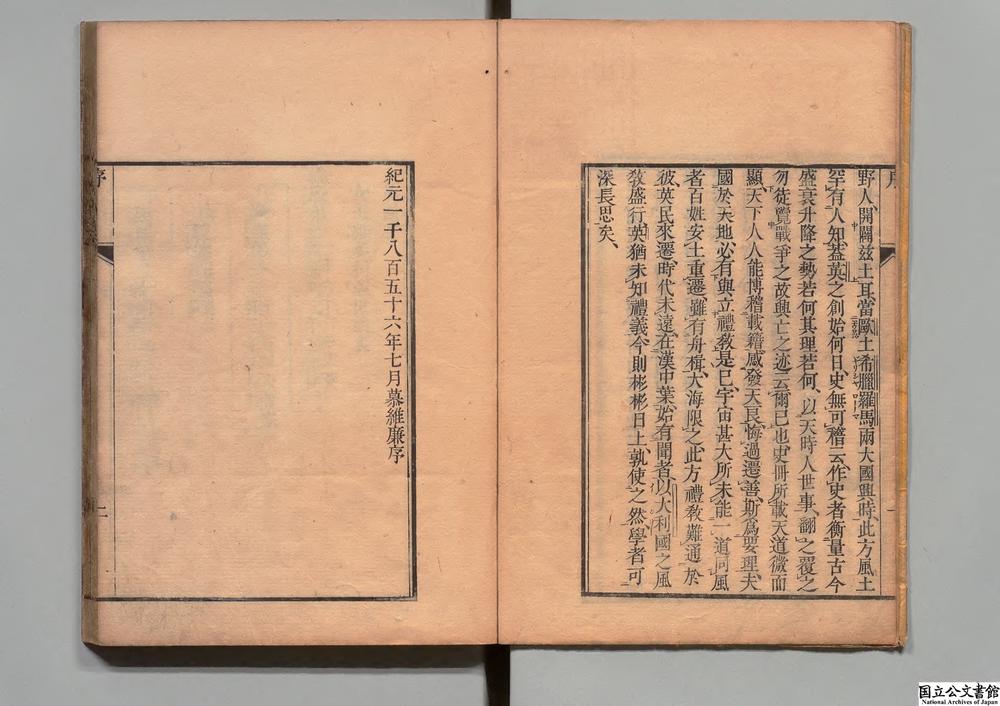 序
野人、開闢茲土耳、當歐土希臘羅馬兩大國興時、此方風土
罕有人知、蓋英之創始何日、史無可稽云、作史者衡量古今
盛衰升降之勢若何、其理若何、以天時人世事、翻之覆之
勿徒覽戰爭之故、興亡之迹云爾已也、史冊所載、天道微而
顯、天下人人能博稽載籍、感發天良、悔過遷善、斯爲要理、夫
國於天地、必有與立、禮教是已、宇宙甚大、所未能一道同風
者、百姓安土重遷、雖有舟楫、大海限之、此方禮教、難通於
彼、英民來遷、時代未遠、在漢中葉、始有聞者、以大利國之風
教盛行、英猶未知禮義、今則彬彬日上、孰使之然、學者可
深長思矣、
紀元一千八百五十六年七月慕維廉序
序
二
国立公文書館
National Archives of Japan